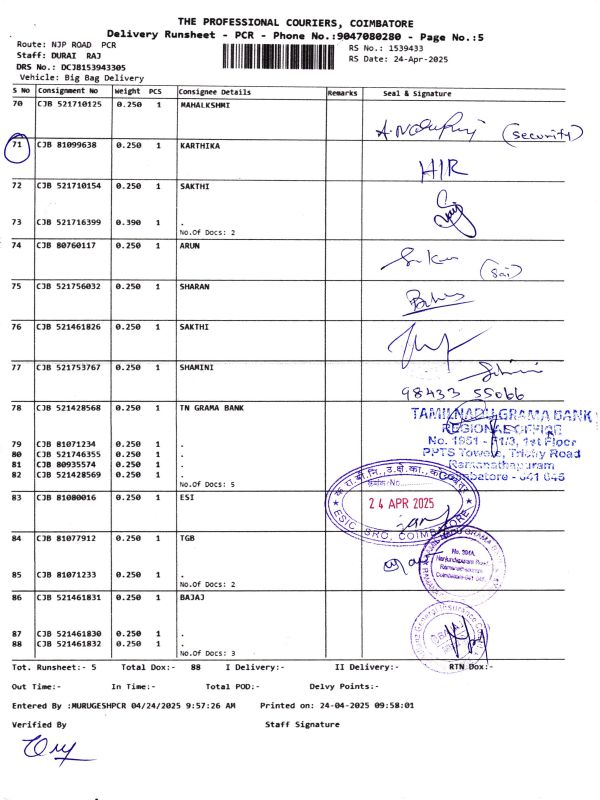 THE PROFESSIONAL COURIERS, COIMBATORE
Delivery Runsheet - PCR - Phone No.:9047080280 - Page No.:5
Route: NJP ROAD PCR
RS No.: 1539433
Staff: DURAI RAJ
RS Date: 24-Apr-2025
DRS No.: DCJB153943305
Vehicle: Big Bag Delivery
S No Consignment No Weight PCS Consignee Details Remarks Seal & Signature
70 CJB 521710125 0.250 1 MAHALKSHMI
(security)
71 CJB 81099638 0.250 1 KARTHIKA
HIR
72 CJB 521710154 0.250 1 SAKTHI
73 CJB 521716399 0.390 1 .
No.Of Docs: 2
74 CJB 80760117 0.250 1 ARUN
(Sai)
75 CJB 521756032 0.250 1 SHARAN
76 CJB 521461826 0.250 1 SAKTHI
77 CJB 521753767 0.250 1 SHAMINI
98433 55066
78 CJB 521428568 0.250 1 TN GRAMA BANK
TAMILNADU GRAMA BANK
REGIONAL OFFICE
No. 1951 - F1/3, 1st Floor
PPTS Towers, Trichy Road
Ramanathapuram
Coimbatore - 641 045
79 CJB 81071234 0.250 1 .
80 CJB 521746355 0.250 1 .
81 CJB 80935574 0.250 1 .
82 CJB 521428569 0.250 1 .
No.Of Docs: 5
83 CJB 81080016 0.250 1 ESI
24 APR 2025
ESIC, SRO, COIMBATORE
84 CJB 81077912 0.250 1 TGB
85 CJB 81071233 0.250 1 .
No.Of Docs: 2
86 CJB 521461831 0.250 1 BAJAJ
87 CJB 521461830 0.250 1 .
88 CJB 521461832 0.250 1 .
No.Of Docs: 3
Tot. Runsheet:- 5 Total Dox:- 88 I Delivery:- II Delivery:- RTN Dox:-
Out Time:- In Time:- Total POD:- Delvy Points:-
Entered By :MURUGESHPCR 04/24/2025 9:57:26 AM Printed on: 24-04-2025 09:58:01
Verified By Staff Signature